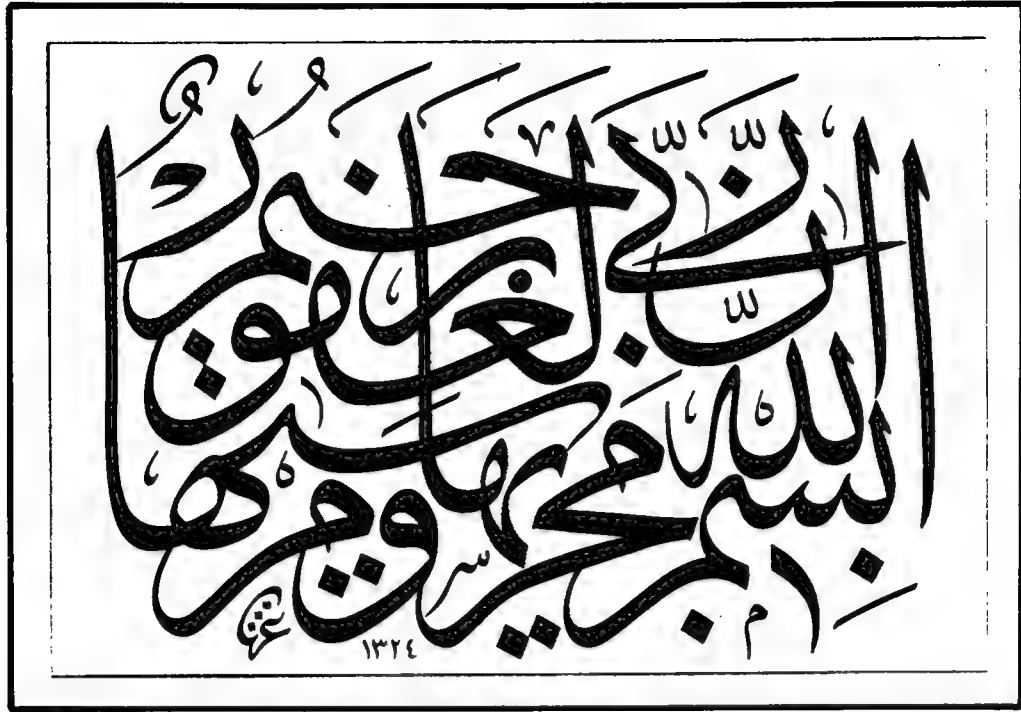 بِسْمِ اللهِ مَجْرٰىهَا وَمُرْسٰىهَا
اِنَّ رَبِّي لَغَفُورٌ رَحِيمٌ
١٣٢٤